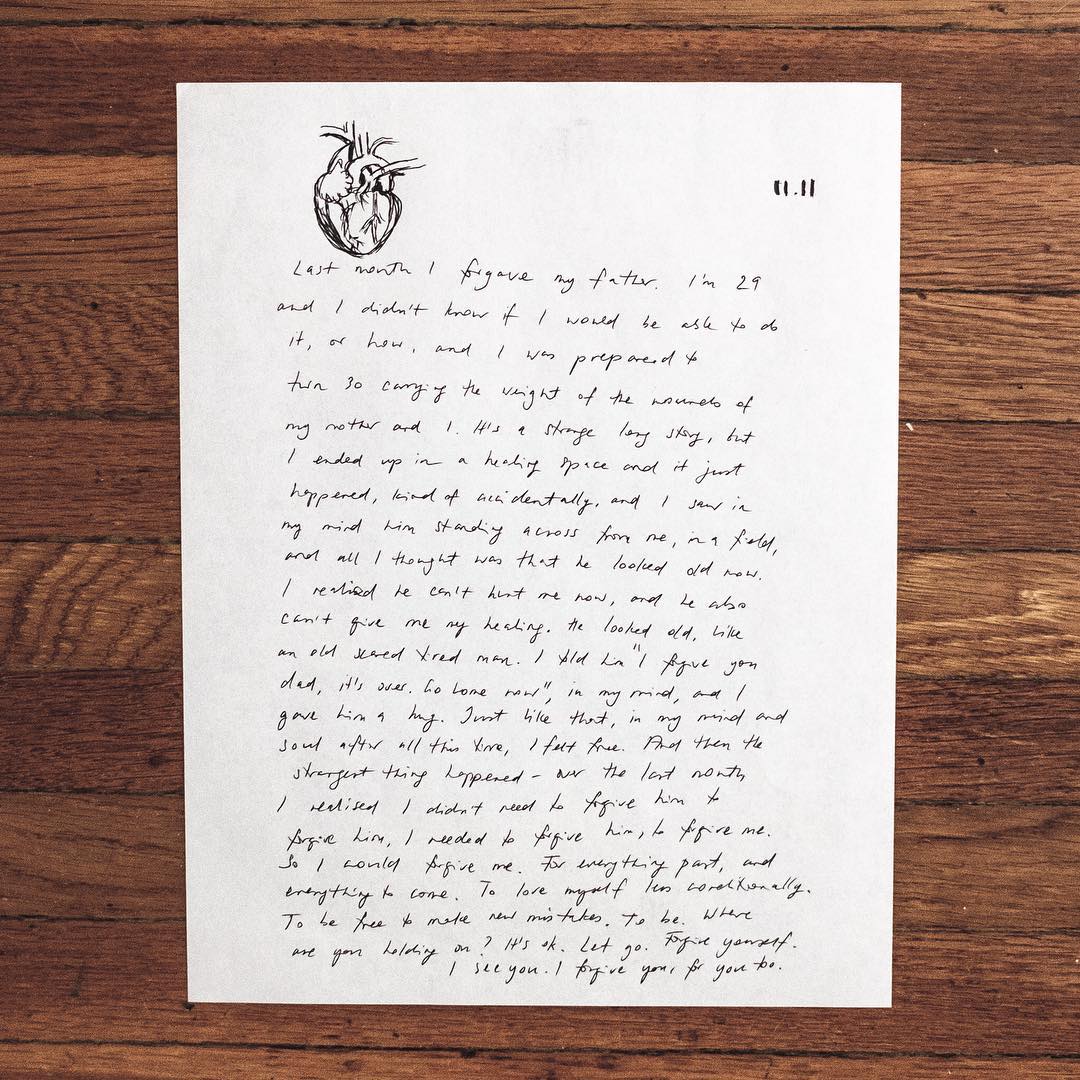 11.11
Last month I forgave my father. I'm 29
and I didn't know if I would be able to do
it, or how, and I was prepared to
turn 30 carrying the weight of the wounds of
my mother and I. It's a strange long story, but
I ended up in a healing space and it just
happened, kind of accidentally, and I saw in
my mind him standing across from me, in a field,
and all I thought was that he looked old now.
I realised he can't hurt me now, and he also
can't give me my healing. He looked old, like
an old scared tired man. I told him "I forgive you
dad, it's over. Go home now", in my mind, and I
gave him a hug. Just like that, in my mind and
soul after all this time, I felt free. And then the
strangest thing happened - over the last month
I realised I didn't need to forgive him to
forgive him, I needed to forgive him, to forgive me.
So I would forgive me. For everything past, and
everything to come. To love myself less conditionally.
To be free to make new mistakes. To be. Where
are you holding on? It's ok. Let go. Forgive yourself.
I see you. I forgive you, for you too.